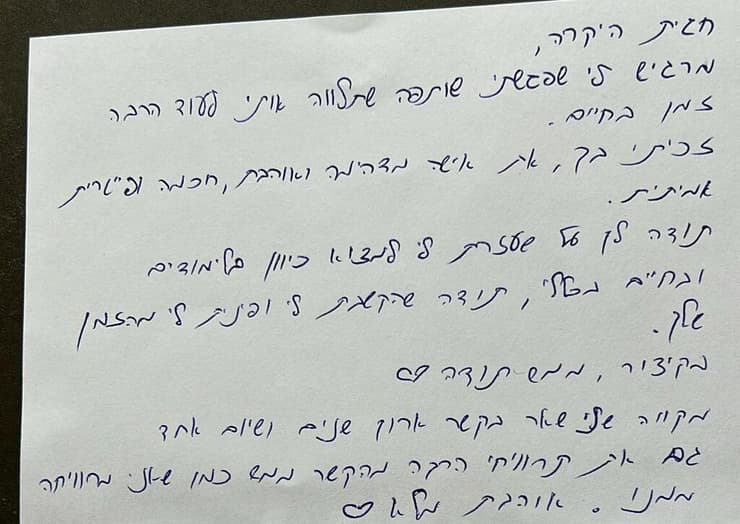 חגית היקרה,
מרגיש לי שפגשתי שותפה שתלווה אותי לעוד הרבה
זמן בחיים.
זכיתי בך, את אישה מדהימה ואוהבת, חכמה ופייטרית
אמיתית.
תודה לך על שעזרת לי למצוא כיוון בלימודים
ובחיים בכללי, תודה שהקשבת לי ופינית לי מהזמן
שלך.
בקיצור, ממש תודה ♡
מקווה שנישאר בקשר ארוך שנים ושיום אחד
גם את תרוויחי הרבה מהקשר ממש כמו שאני מרוויחה
ממנו. אוהבת מלא ♡